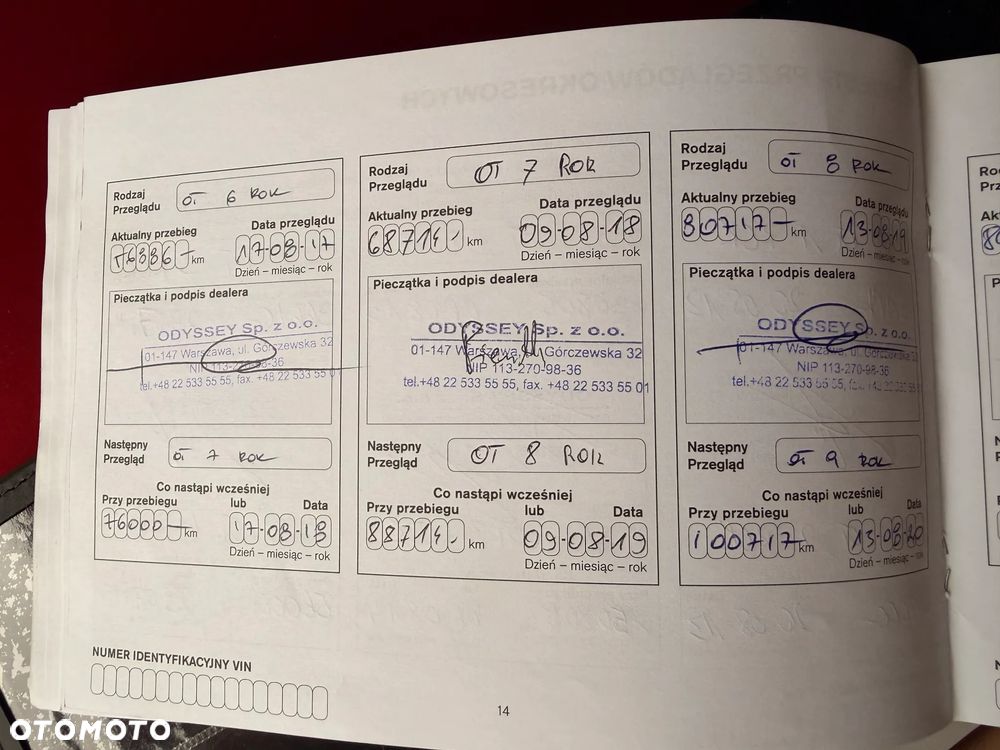 Rodzaj Przeglądu
OT 6 ROK
Aktualny przebieg
Data przeglądu
km
17-08-17
Dzień – miesiąc – rok
Pieczątka i podpis dealera
ODYSSEY Sp. z o.o.
01-147 Warszawa, ul. Górczewska 32
NIP 113-270-98-36
tel.+48 22 533 55 55, fax. +48 22 533 55 01
Następny Przegląd
OT 7 ROK
Co nastąpi wcześniej
Przy przebiegu
lub
Data
76000
km
17-08-18
Dzień – miesiąc – rok
Rodzaj Przeglądu
OT 7 ROK
Aktualny przebieg
Data przeglądu
68714
km
09-08-18
Dzień – miesiąc – rok
Pieczątka i podpis dealera
ODYSSEY Sp. z o.o.
01-147 Warszawa, ul. Górczewska 32
NIP 113-270-98-36
tel.+48 22 533 55 55, fax. +48 22 533 55 01
Następny Przegląd
OT 8 ROK
Co nastąpi wcześniej
Przy przebiegu
lub
Data
88714
km
09-08-19
Dzień – miesiąc – rok
Rodzaj Przeglądu
OT 8 ROK
Aktualny przebieg
Data przeglądu
80717
km
13-08-19
Dzień – miesiąc – rok
Pieczątka i podpis dealera
ODYSSEY Sp. z o.o.
01-147 Warszawa, ul. Górczewska 32
NIP 113-270-98-36
tel.+48 22 533 55 55, fax. +48 22 533 55
Następny Przegląd
OT 9 ROK
Co nastąpi wcześniej
Przy przebiegu
lub
Data
100717
km
13-08-20
Dzień – miesiąc – rok
NUMER IDENTYFIKACYJNY VIN
14
OTOMOTO